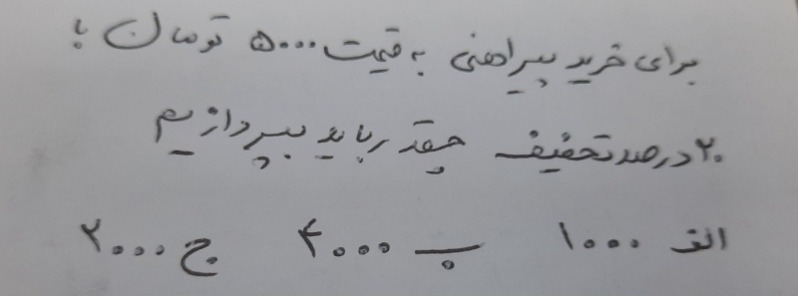 برای خرید پیراهنی به قیمت ۵۰۰۰ تومان با
۲۰ درصد تخفیف چقدر باید بپردازیم
الف ۱۰۰۰ ب ۴۰۰۰ ج ۲۰۰۰